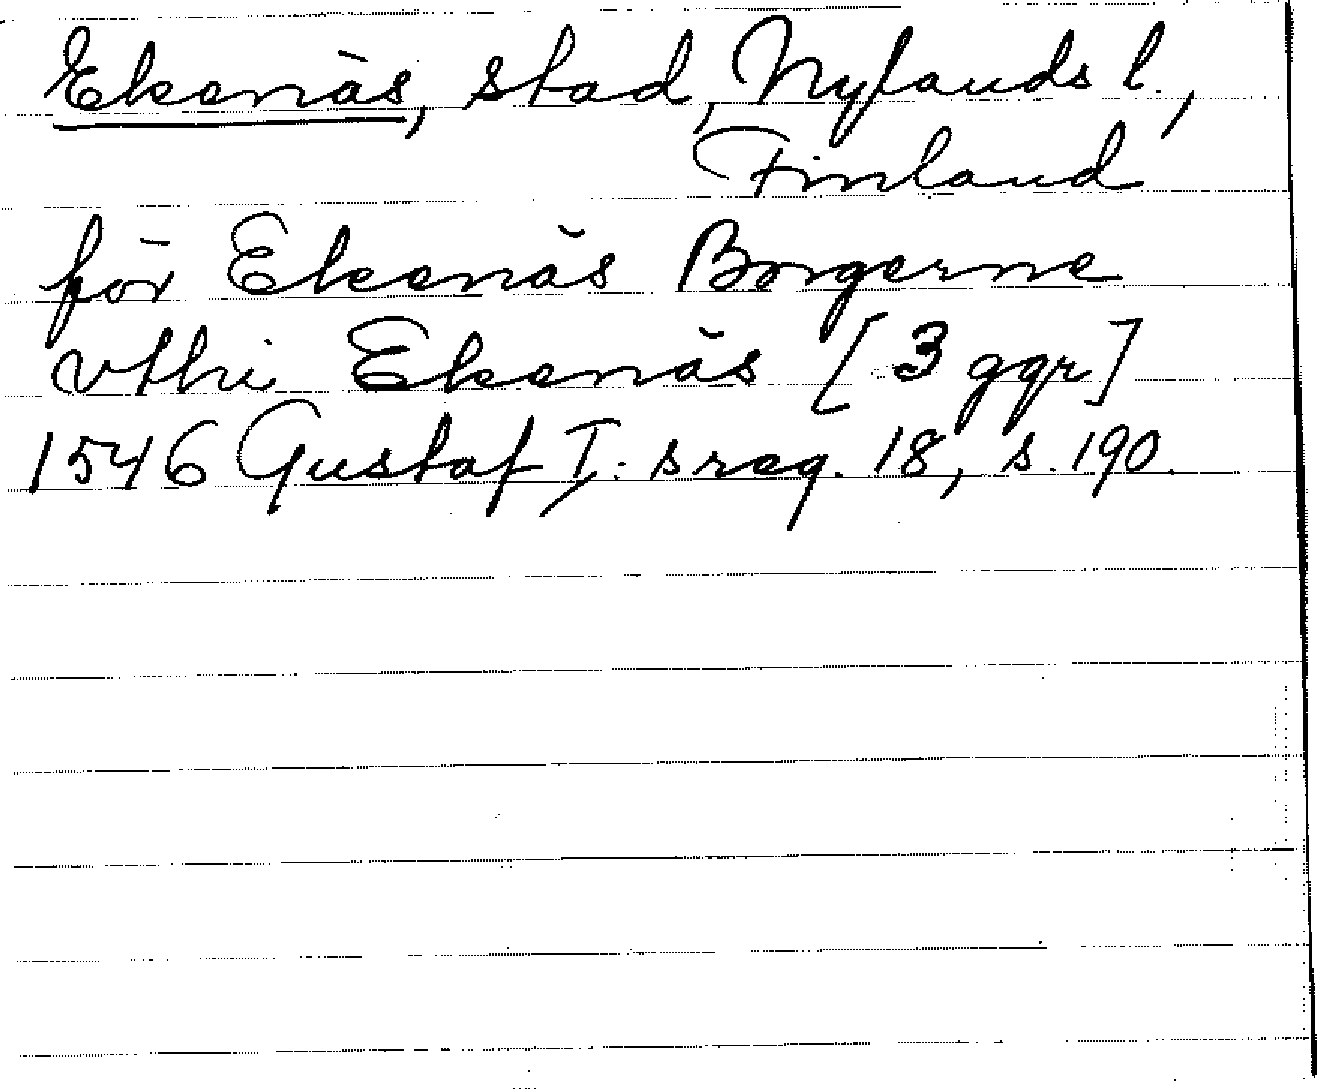 Ekenäs, stad, Nylands l.,
Finland
för Ekenäs Borgerne
vthi Ekenäs [3 ggr]
1546 Gustaf I:s reg. 18, s. 190.